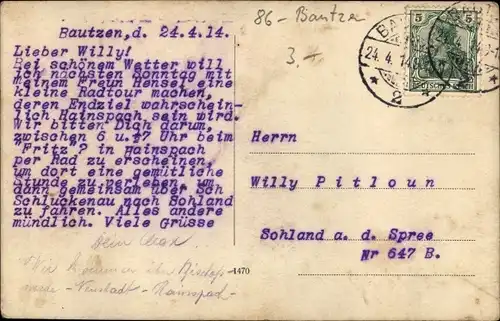 86 - Bautzen
3.-
Bautzen,d. 24.4.14.
Lieber Willy!
Bei schönem Wetter will
ich nächsten Sonntag mit
meinem Freund Hensel eine
kleine Radtour machen,
deren Endziel wahrschein-
lich Hainspach sein wird.
Wir bitten Dich darum,
zwischen 6 u. 7 Uhr beim
"Fritz" ? in Hainspach
per Rad zu erscheinen,
um dort eine gemütliche
Stunde zu verleben, um
dann gemeinsam über
Schluckenau nach Sohland
zu fahren. Alles andere
mündlich. Viele Grüsse
Dein Max
Wir kommen über Bischofs-
- Neustadt - Hainspach -
1470
5 5
24.4.14
* 2 *
Herrn
Willy Pitloun
Sohland a. d. Spree
Nr 647 B.